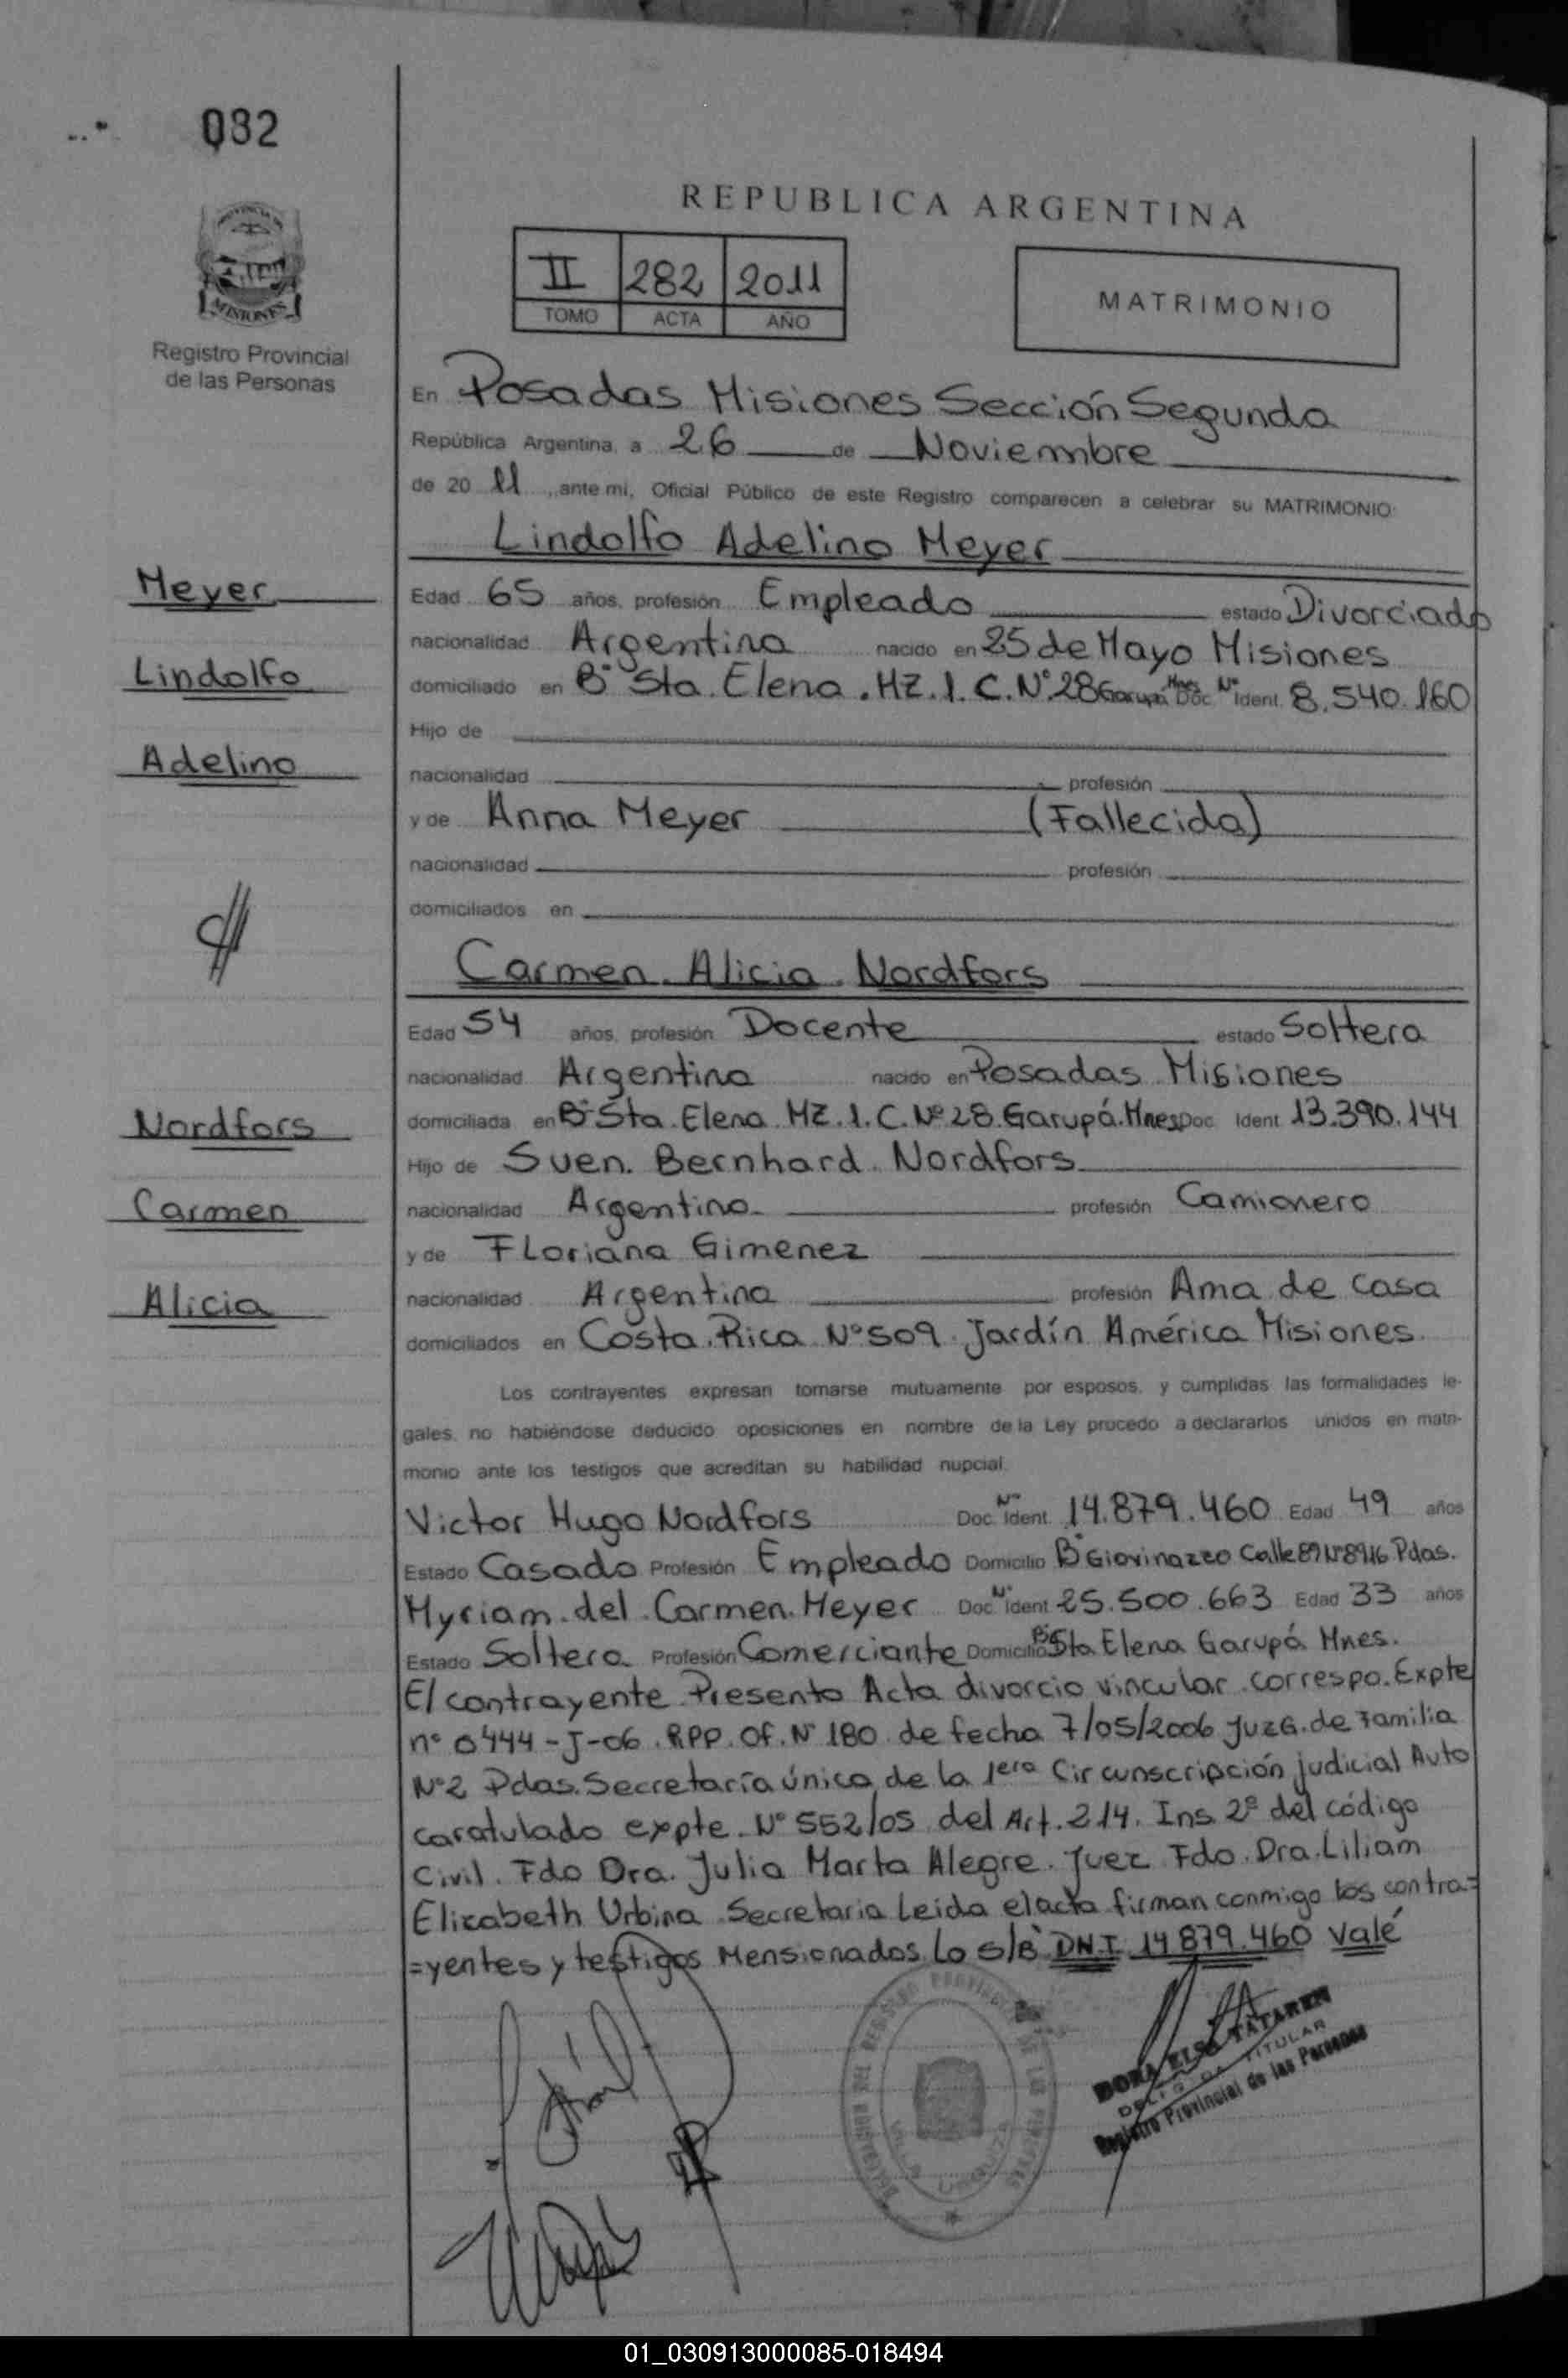 082
PROVINCIA DE
MISIONES
Registro Provincial
de las Personas
REPUBLICA ARGENTINA
II 282 2011
TOMO ACTA AÑO
MATRIMONIO
En Posadas Misiones Sección Segunda
República Argentina, a 26 de Noviembre
de 20 11, ante mi, Oficial Público de este Registro comparecen a celebrar su MATRIMONIO:
Lindolfo Adelino Meyer
Meyer
Edad 65 años, profesión Empleado estado Divorciado
nacionalidad Argentina nacido en 25 de Mayo Misiones
Lindolfo
domiciliado en B° Sta. Elena. MZ. 1. C. N° 28 Garupá Mnes Doc. N° Ident. 8.540.160
Hijo de
Adelino
nacionalidad profesión
y de Anna Meyer (Fallecida)
nacionalidad profesión
domiciliados en
Carmen Alicia Nordfors
Edad 54 años, profesión Docente estado Soltera
nacionalidad Argentina nacido en Posadas Misiones
Nordfors
domiciliada en B° Sta. Elena MZ. 1. C. N° 28 Garupá. Mnes Doc. Ident 13.390.144
Hijo de Sven. Bernhard. Nordfors
Carmen
nacionalidad Argentino profesión Camionero
y de Floriana Gimenez
Alicia
nacionalidad Argentina profesión Ama de casa
domiciliados en Costa. Rica N° 509. Jardín América Misiones.
Los contrayentes expresan tomarse mutuamente por esposos, y cumplidas las formalidades le-
gales, no habiéndose deducido oposiciones en nombre de la Ley procedo a declararlos unidos en matri-
monio ante los testigos que acreditan su habilidad nupcial.
Victor Hugo Nordfors Doc. N° Ident. 14.879.460 Edad 49 años
Estado Casado Profesión Empleado Domicilio B° Giovinazzo Calle 89 N° 8916 Pdas.
Myriam. del. Carmen. Meyer Doc. N° Ident 25.500.663 Edad 33 años
Estado Soltera Profesión Comerciante Domicilio B° Sta Elena Garupá Mnes.
El contrayente Presento Acta divorcio vincular correspo. Expte
n° 0444-J-06. RPP. Of. N° 180 de fecha 7/05/2006 Juzg. de Familia
N° 2 Pdas. Secretaría única de la 1era Circunscripción judicial Auto
caratulado expte. N° 552/05 del Art. 214. Ins 2° del código
Civil. Fdo Dra. Julia Marta Alegre. Juez Fdo. Dra. Liliam
Elizabeth Urbina Secretaria Leida el acta firman conmigo los contra=
=yentes y testigos Mensionados Lo S/B DNI 14 879.460 Valé
DORA ELSA TATAREN
DELEGADA TITULAR
Registro Provincial de las Personas
01_030913000085-018494